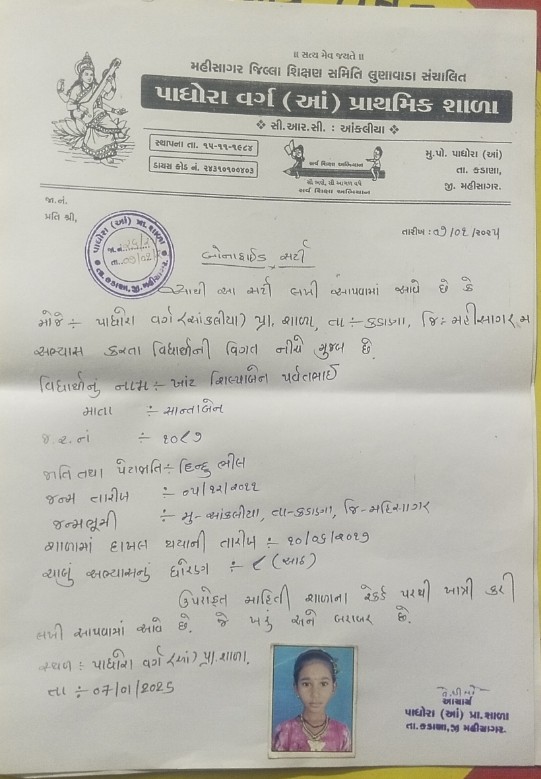 ॥ સત્ય મેવ જયતે ॥
મહીસાગર જિલ્લા શિક્ષણ સમિતિ લુણાવાડા સંચાલિત
પાધોરા વર્ગ (આં) પ્રાથમિક શાળા
❖ સી.આર.સી. : આંકલીયા ❖
સ્થાપના તા. ૧૫-૧૧-૧૯૮૪
ડાયસ કોડ નં. ૨૪૩૧૦૧૦૦૪૦૩
સર્વ શિક્ષા અભિયાન
સૌ ભણે, સૌ આગળ વધે
સર્વ શિક્ષા અભિયાન
મુ.પો. પાધોરા (આં)
તા. કડાણા,
જી. મહીસાગર.
જા.નં.
પ્રતિ શ્રી,
પાધોરા (આં) પ્રા.શાળા
જા.નં.
તા.
તા.કડાણા,જી.મહીસાગર.
તારીખ :
બોનાફાઈડ સર્ટી
આથી આ સર્ટી લખી આપવામાં આવે છે કે
મોજે ÷ પાધોરા વર્ગ (આંકલીયા) પ્રા. શાળા, તા ÷ કડાણા, જિ÷ મહીસાગર મ
અભ્યાસ કરતા વિદ્યાર્થીની વિગત નીચે મુજબ છે.
વિદ્યાર્થીનું નામ ÷ ખાંટ શિલ્પાબેન પર્વતભાઈ
માતા ÷ સાન્તાબેન
જ.ર.નં ÷ ૧૦૮૭
જાતિ તથા પેટાજાતિ ÷ હિન્દુ ભીલ
જન્મ તારીખ ÷ ૦૫/૧૨/૨૦૧૧
જન્મભૂમી ÷ મુ- આંકલીયા, તા-કડાણા, જિ-મહિસાગર
શાળામાં દાખલ થયાની તારીખ ÷ ૧૦/૦૬/૨૦૧૭
ચાલું અભ્યાસનું ધોરણ ÷ ૮ (આઠ)
ઉપરોક્ત માહિતી શાળાના રેકર્ડ પરથી ખાત્રી કરી
લખી આપવામાં આવે છે. જે ખરું અને બરાબર છે.
સ્થળ : પાધોરા વર્ગ (આં) પ્રા. શાળા.
તા ÷ 07/01/2025
આચાર્ય
પાધોરા (આં) પ્રા.શાળા
તા.કડાણા,જી મહીસાગર.